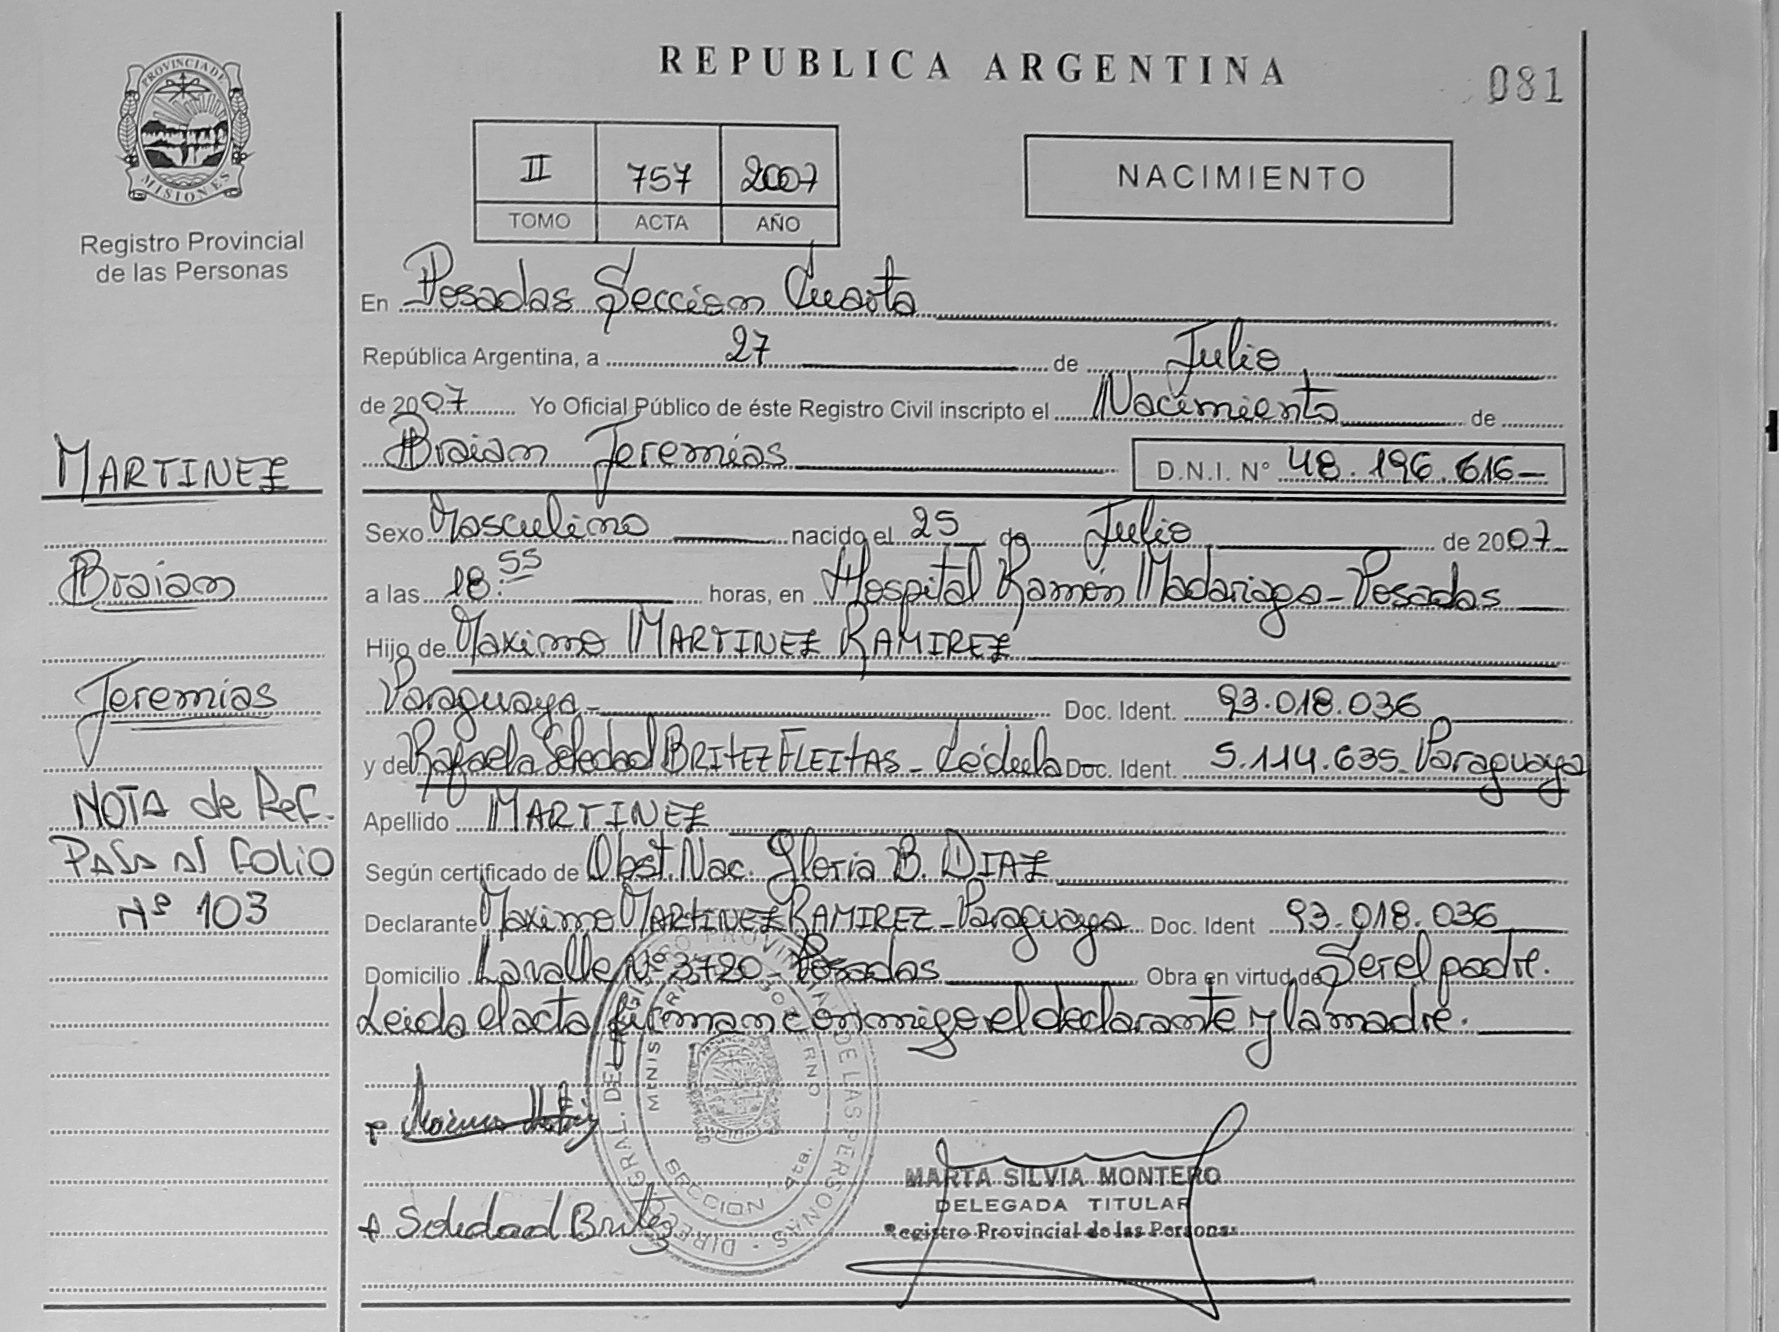 REPUBLICA ARGENTINA
081
PROVINCIA DE
MISIONES
Registro Provincial
de las Personas
II 757 2007
TOMO ACTA AÑO
NACIMIENTO
En Posadas Sección Cuarta
República Argentina, a 27 de Julio
de 2007 Yo Oficial Público de éste Registro Civil inscripto el Nacimiento de
Braian Jeremías D.N.I. N° 48.196.616
Sexo Masculino nacido el 25 de Julio de 2007
a las 18:55 horas, en Hospital Ramón Madariaga - Posadas
Hijo de Maximo MARTINEZ RAMIREZ
Paraguaya - Doc. Ident. 93.018.036
y de Rafaela Soledad BRITEZ FLEITAS - Cédula Doc. Ident. 5.114.635 - Paraguaya
Apellido MARTINEZ
Según certificado de Obst. Nac. Gloria B. DIAZ
Declarante Maximo MARTINEZ RAMIREZ - Paraguaya Doc. Ident 93.018.036
Domicilio Lavalle N° 3720 - Posadas Obra en virtud de Ser el padre.
Leida el acta firman conmigo el declarante y la madre.
MARTINEZ
Braian
Jeremias
NOTA de Ref.
PASA Al Folio
Nº 103
Soledad Britez
MARTA SILVIA MONTERO
DELEGADA TITULAR
Registro Provincial de las Personas
SECCION 4ta.